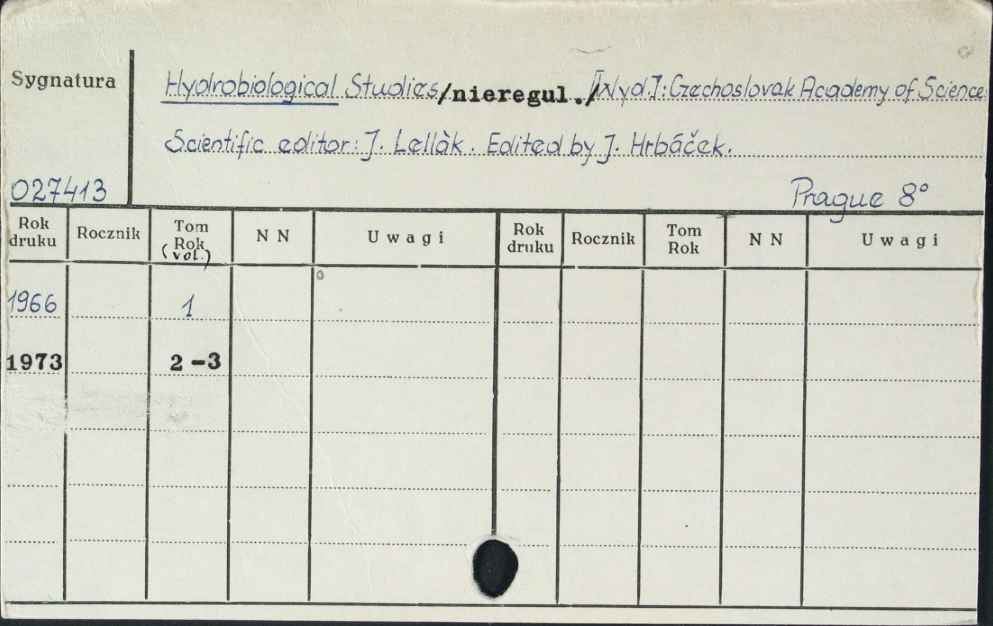 Sygnatura
Hydrobiological Studies/nieregul./[Wyd.]: Czechoslovak Academy of Science
Scientific editor: J. Lellàk. Edited by J. Hrbáček.
027413
Prague 8°
Rok druku Rocznik Tom Rok (vol.) NN Uwagi Rok druku Rocznik Tom Rok NN Uwagi
1966 1
1973 2-3